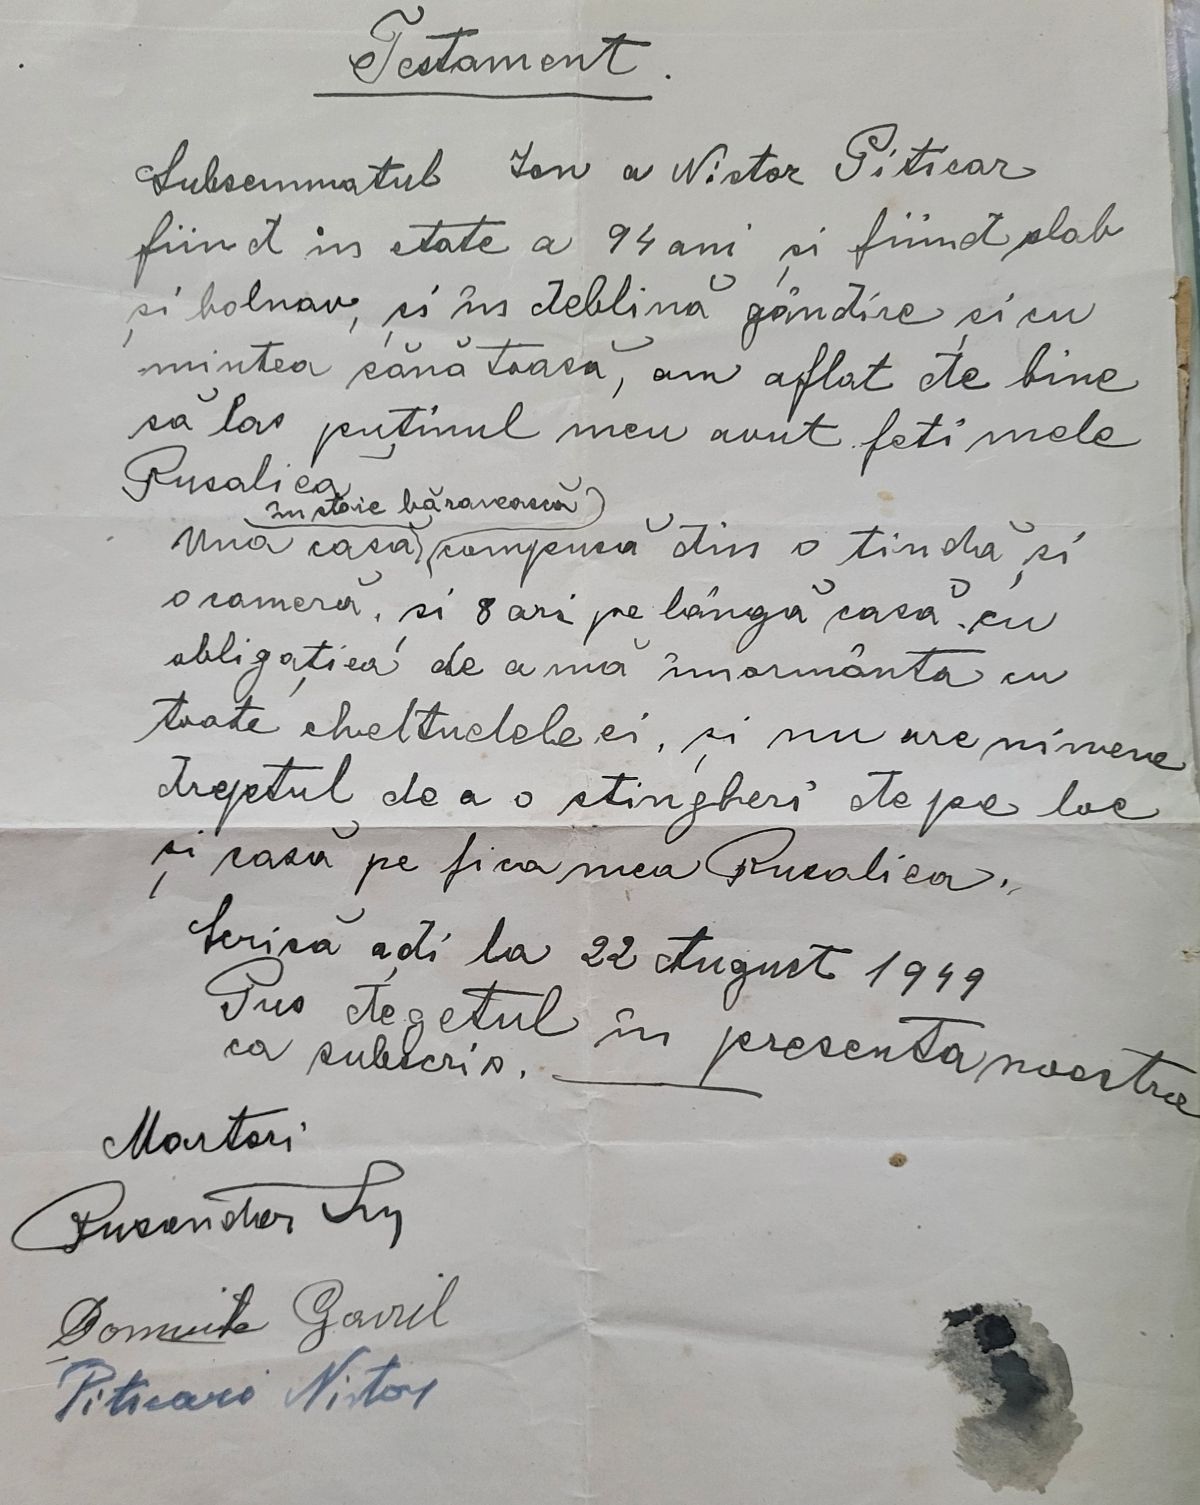 Testament.
Subsemnatul Ion a Nistor Piticar
fiind în etate a 94 ani și fiind slab
și bolnav, și în deblină gândire și cu
mintea sănătoasă, am aflat de bine
să las puținul meu avut feti mele
Rusalica
în stare băravească
Una casă compusă din o tindă și
o cameră, și 8 ari pe lângă casă. cu
obligația de a mă înormânta cu
toate cheltudelele ei, și nu are nimene
dreptul de a o stingheri de pe loc
și casă pe fica mea Rusalica.
Scrisă adi la 22 August 1949
Pus degetul în presenta noastra
ca subscris.
Martori
Rusandar
Gavril
Piticari Nistor